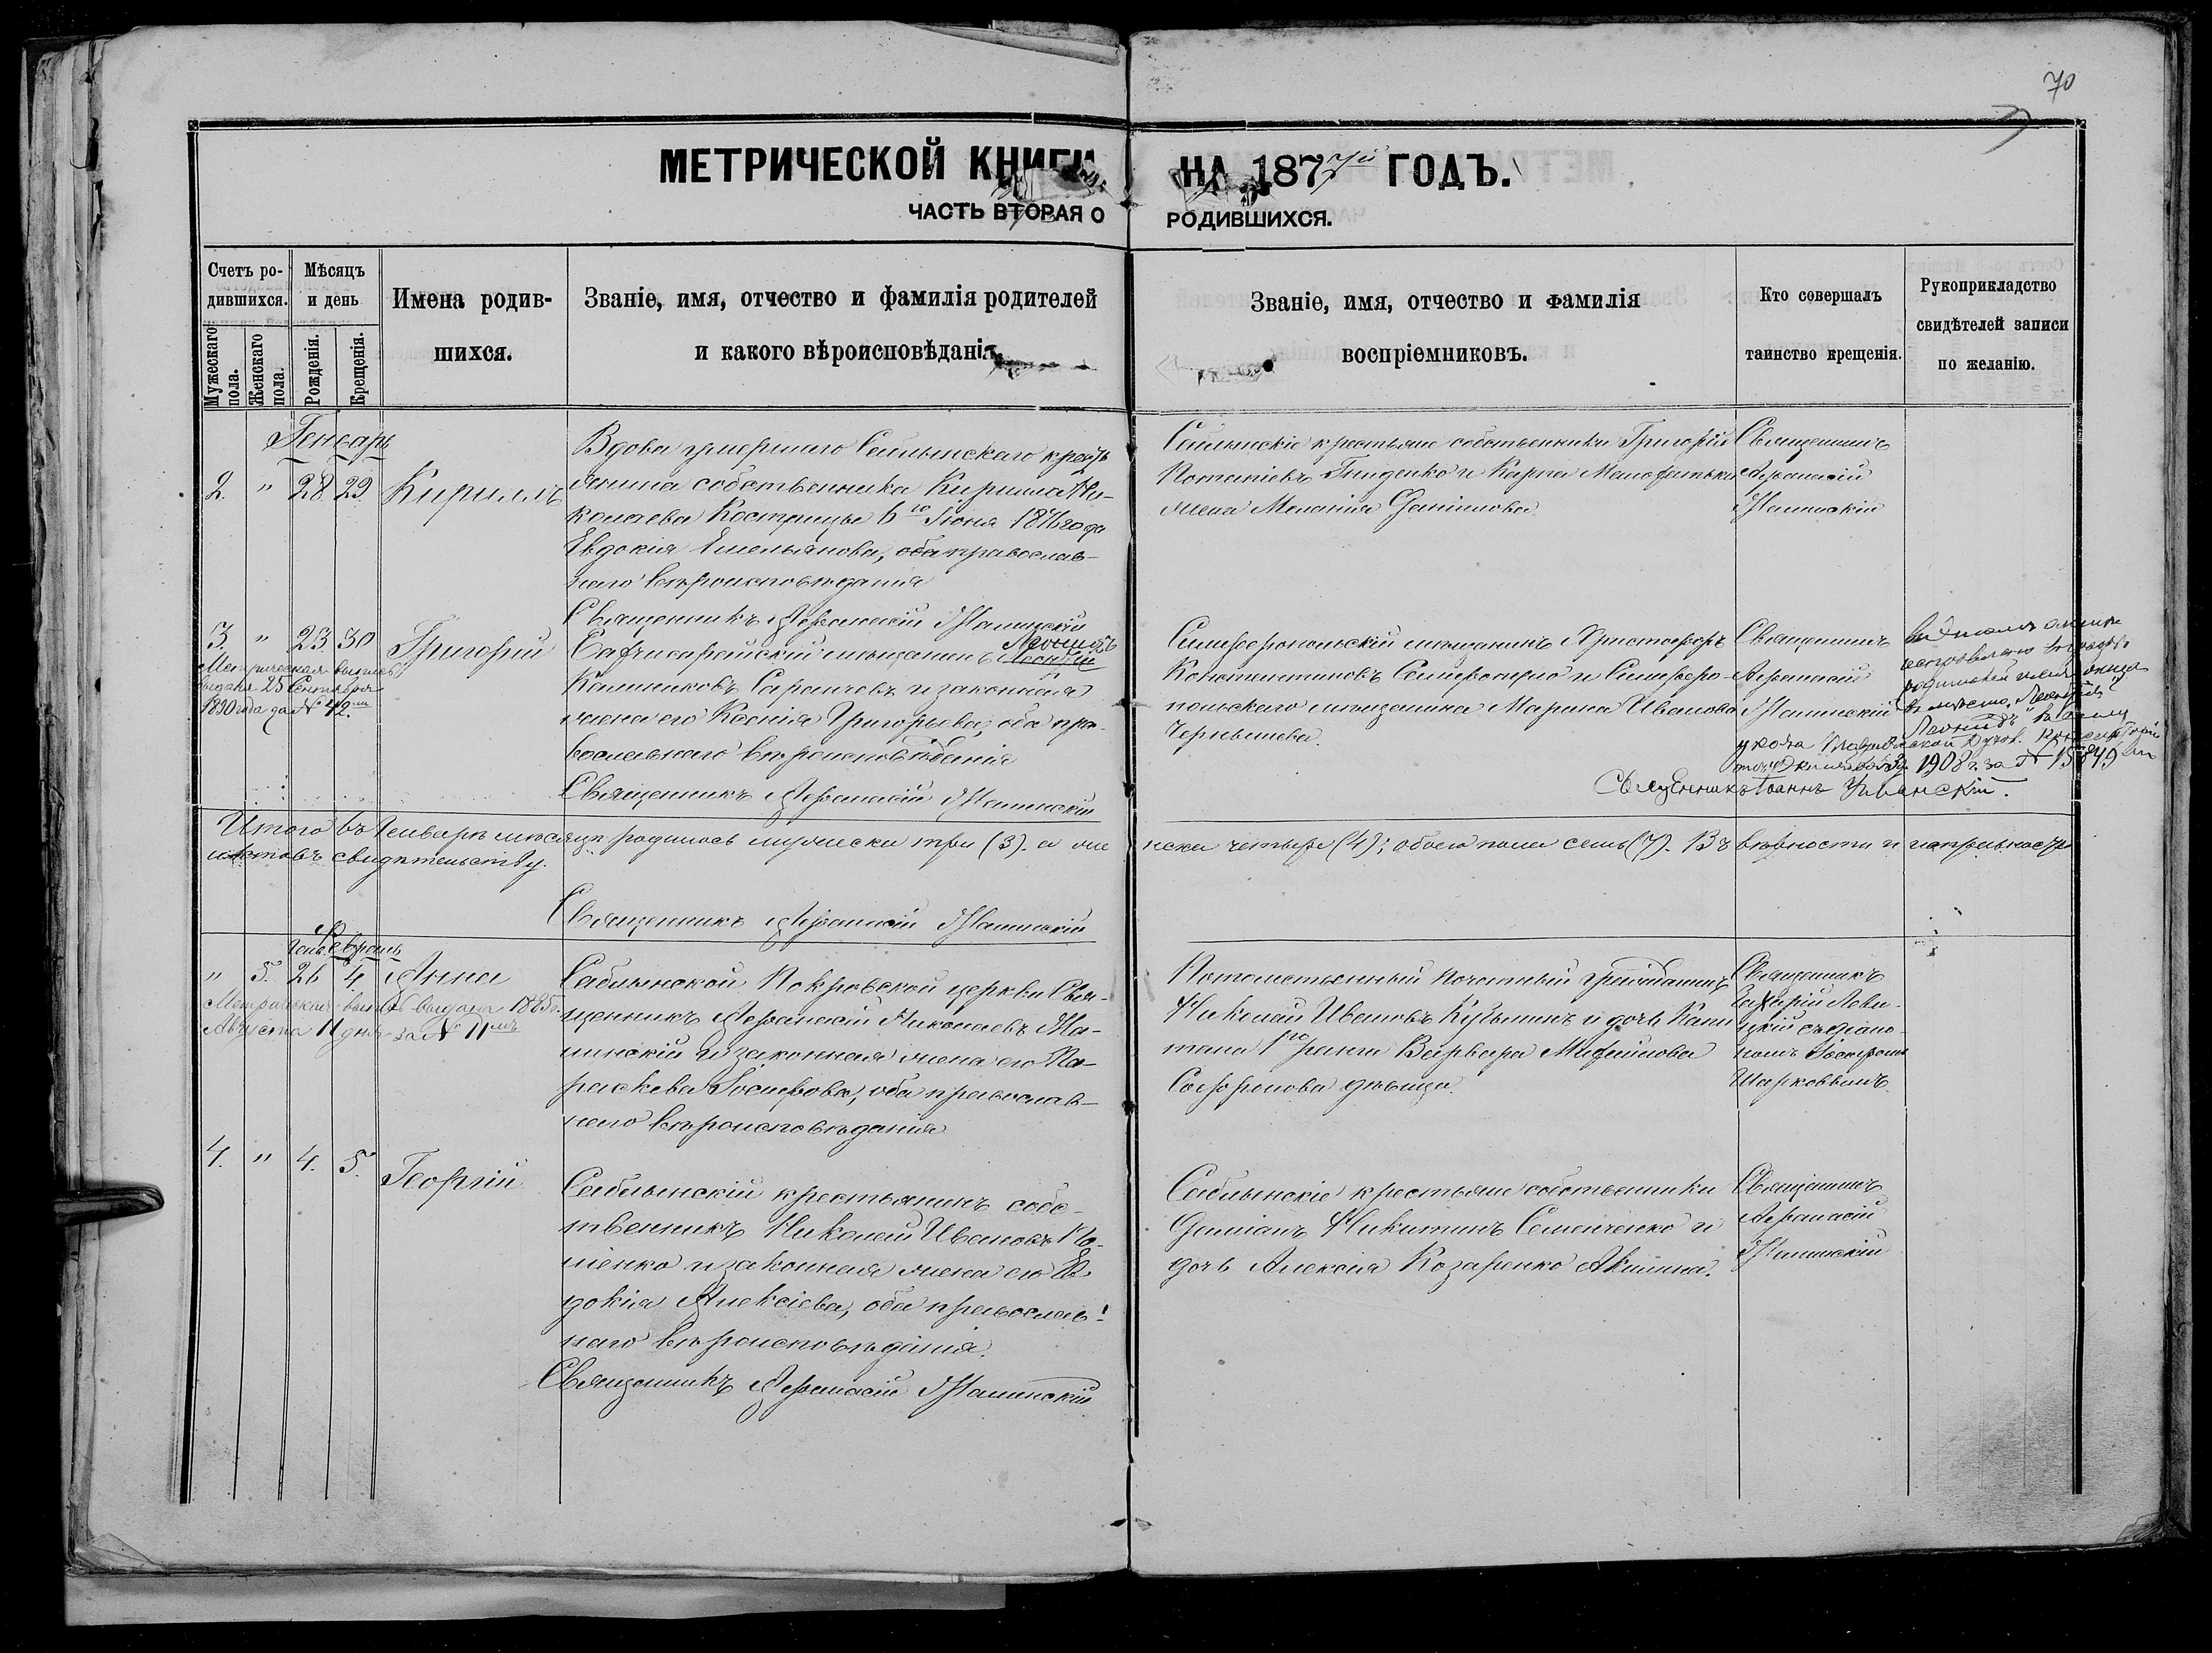 70
МЕТРИЧЕСКОЙ КНИГИ НА 1877й ГОДЪ.
ЧАСТЬ ВТОРАЯ О РОДИВШИХСЯ.
Счетъ ро-
дившихся.
Мужескаго пола.
Женскаго пола.
Мѣсяцъ
и день
Рожденія.
Крещенія.
Имена родив-
шихся.
Званіе, имя, отчество и фамилія родителей
и какого вѣроисповѣданія.
Званіе, имя, отчество и фамилія
воспріемниковъ.
Кто совершалъ
таинство крещенія.
Рукоприкладство
свидѣтелей записи
по желанію.
Генварь
2. " 28 29. Кириллъ
Вдова умершаго Саблынскаго крестъ
янина собственника Кирилла Ни-
колаева Кострицы 6го Іюня 1876 года
Евдокія Емельянова, оба православ-
наго вѣроисповѣданія
Священникъ Аѳанасій
Саблынскіе крестьяне собственники Григорій
Потапіевъ и Карпа
жена Меланія Даніилова
Священникъ
Аѳанасій
3. " 23. 30 Григорій
Метрическая выпись
выдана 25 Сентября
1890 года за № 42
Бахчисарайскій мѣщанинъ Леонидъ
Калинковъ и законная
жена его Ксенія Григорьева, оба пра-
вославнаго вѣроисповѣданія
Священникъ Аѳанасій
Симферопольскій мѣщанинъ Христофоръ
Константиновъ и Симферо-
польскаго мѣщанина Марина Иванова
Чернышева.
Священникъ
Аѳанасій
вмѣсто
Леонидъ
указа Таврической Духов. Консисторіи
1908 г. за № 15849
Священникъ Іоаннъ
Итого въ Генварѣ мѣсяцѣ родилось мужеска три (3). а же нска четыре (4); обоего пола семь (7). Въ вѣрности и исправности
свидѣтельству.
Священникъ Аѳанасій
Февраль
Генв.
" 5. 26 4. Анна
Метрическая выпись выдана 1885 г.
Августа 11 дня за № 11
Саблынской Покровской церкви Свя-
щенникъ Аѳанасій Николаевъ
и законная жена его Па-
раскева Іосифова, оба православ-
наго вѣроисповѣданія
Потомственный Почетный гражданинъ
Николай Ивановъ и дочь Капи
тана 1го ранга Варвара
Софронова дѣвица.
Священникъ
Захарій Леви-
цкій съ діако-
номъ
4. " 4. 5. Георгій
Саблынскій крестьянинъ собс-
твенникъ Николай Ивановъ
и законная жена его Ев
докія Алексіева, оба православ-
наго вѣроисповѣданія.
Священникъ Аѳанасій
Саблынскіе крестьяне собственники
Даміанъ Никитинъ Семенченко и
дочь Алексія Козаренко Акилина.
Священникъ
Аѳанасій